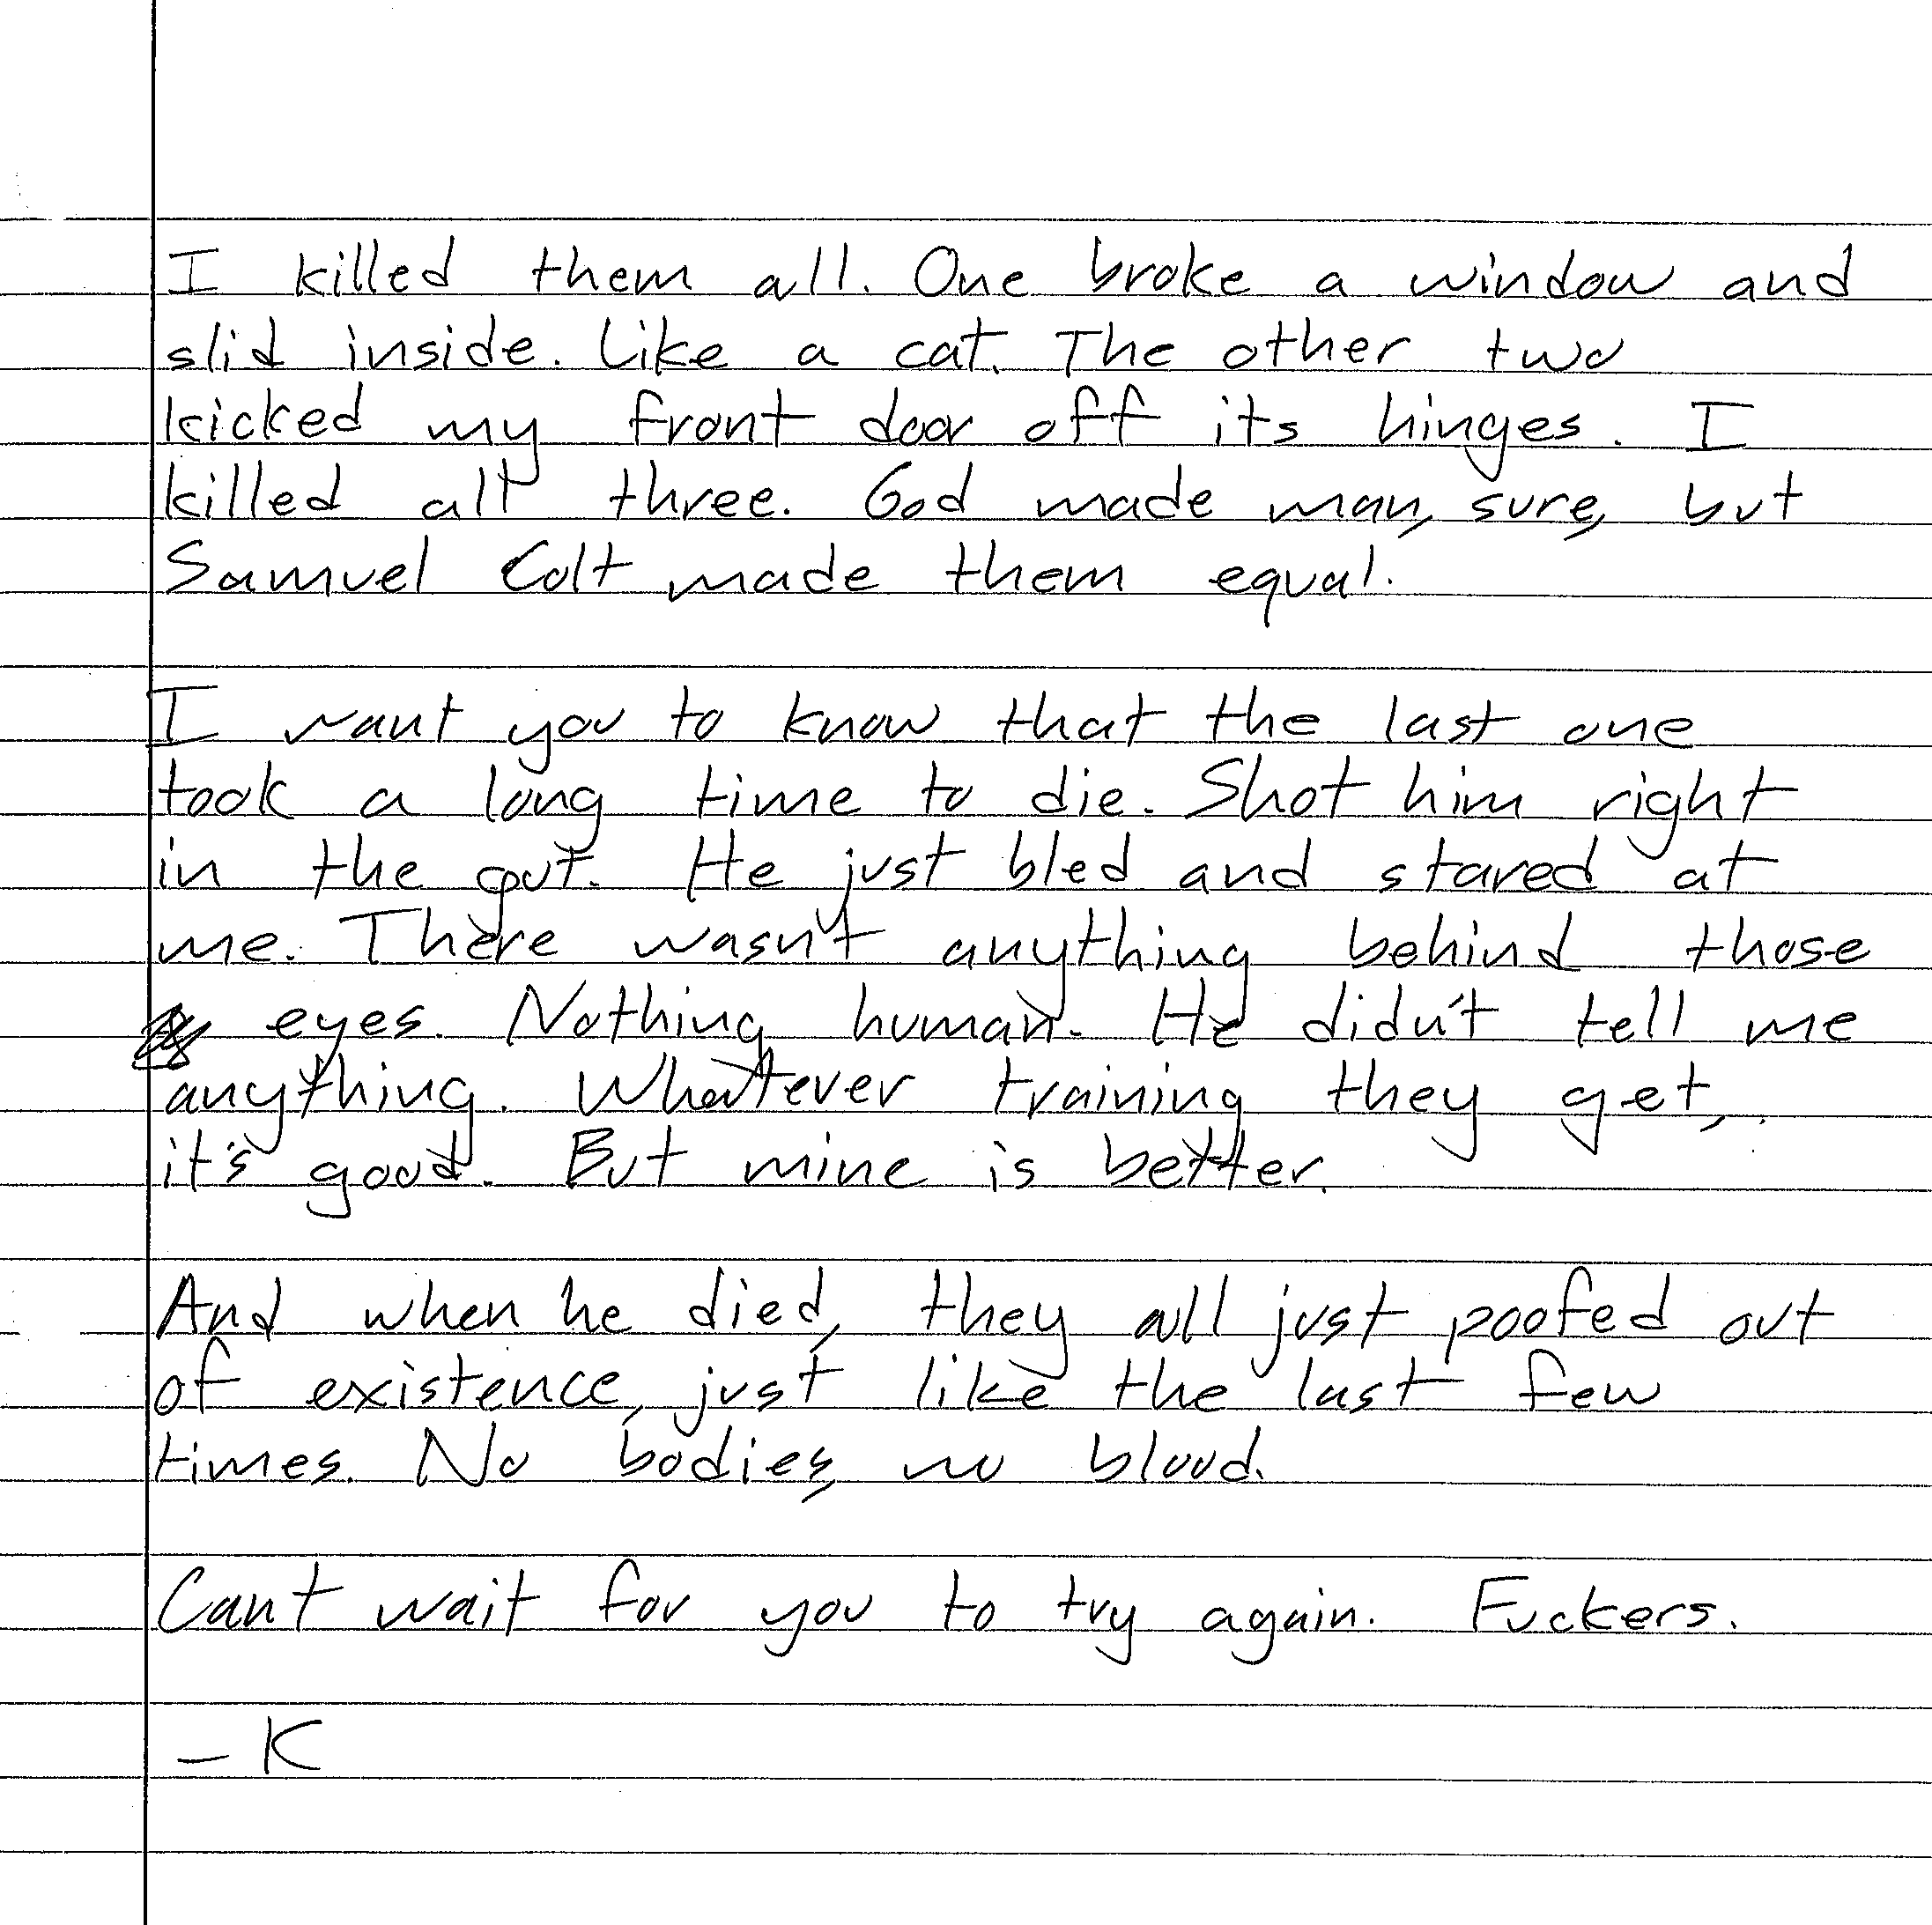 I killed them all. One broke a window and
slid inside. Like a cat. The other two
kicked my front door off its hinges. I
killed all three. God made man, sure, but
Samuel Colt made them equal.
I want you to know that the last one
took a long time to die. Shot him right
in the gut. He just bled and stared at
me. There wasn't anything behind those
eyes. Nothing human. He didn't tell me
anything. Whatever training they get,
it's good. But mine is better.
And when he died, they all just poofed out
of existence, just like the last few
times. No bodies, no blood.
Can't wait for you to try again. Fuckers.
- K